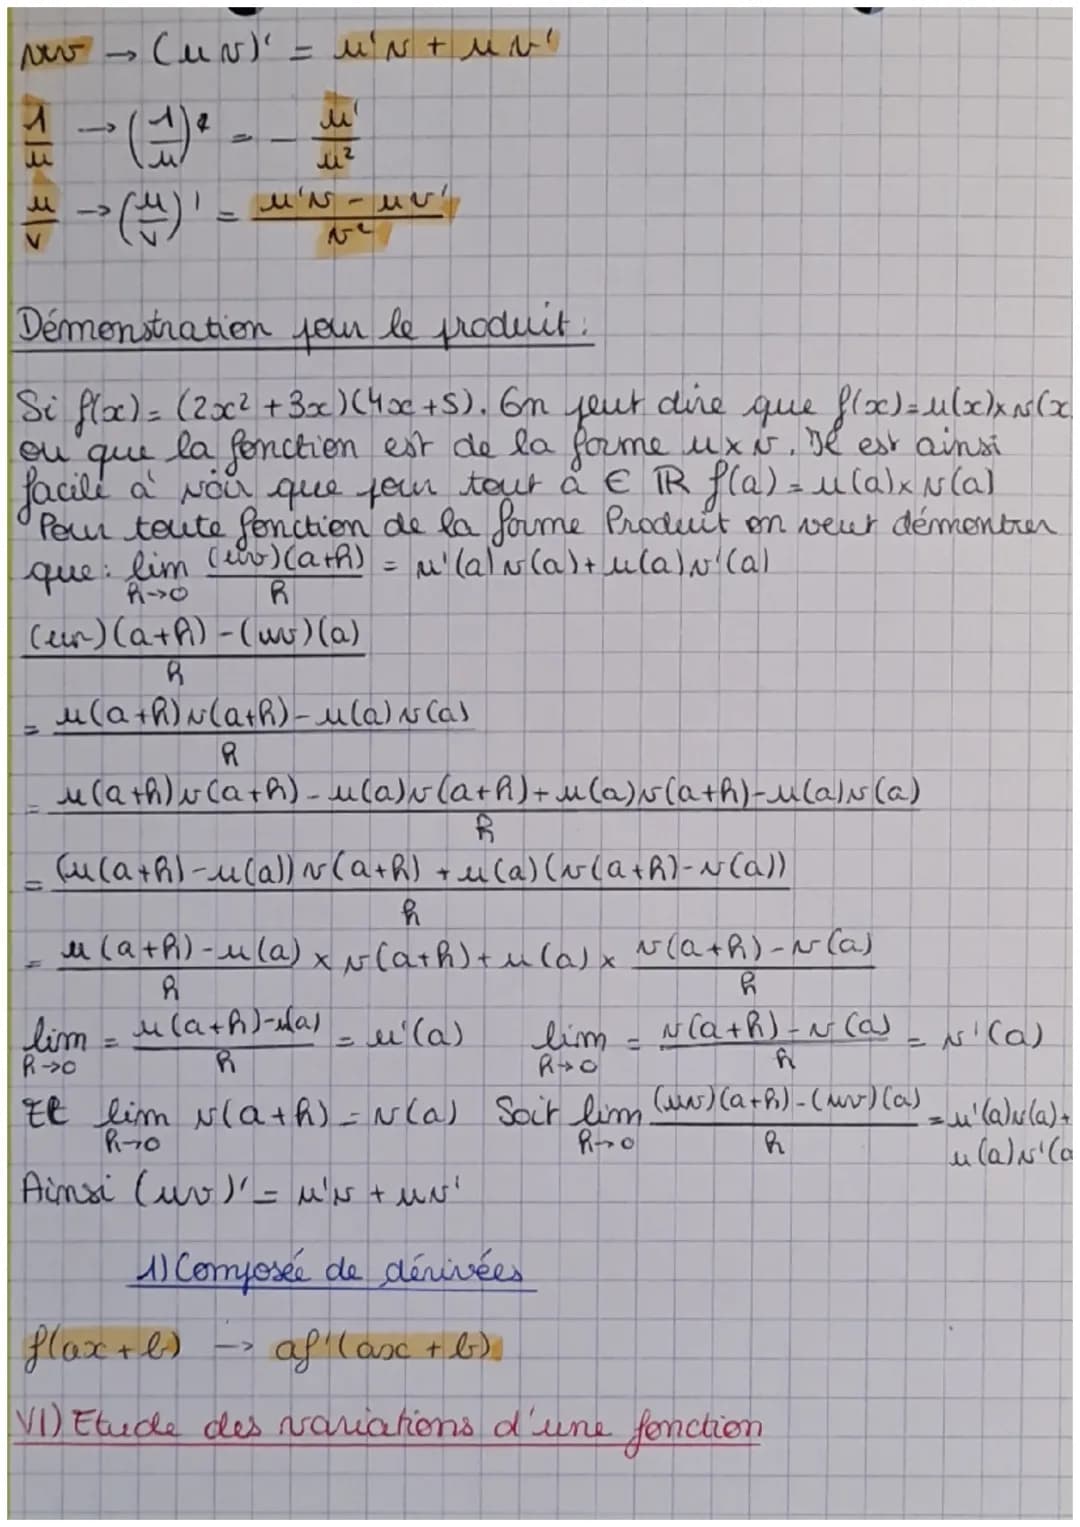 uv → (uv)' = u'v + uv'
1/u → (1/u)' = - u'/u²
u/v → (u/v)' = (u'v - uv')/v²
Démonstration pour le produit :
Si f(x) = (2x² + 3x)(4x + 5). On peut dire que f(x) = u(x) × v(x
ou que la fonction est de la forme u × v. Il est ainsi
facile à voir que pour tout a ∈ ℝ f(a) = u(a) × v(a)
Pour toute fonction de la forme Produit on veut démontrer
que : lim h→0 (uv)(a+h)/h = u'(a)v(a) + u(a)v'(a)
((uv)(a+h) - (uv)(a))/h
= (u(a+h)v(a+h) - u(a)v(a))/h
= (u(a+h)v(a+h) - u(a)v(a+h) + u(a)v(a+h) - u(a)v(a))/h
= ((u(a+h) - u(a))v(a+h) + u(a)(v(a+h) - v(a)))/h
= (u(a+h) - u(a))/h × v(a+h) + u(a) × (v(a+h) - v(a))/h
lim h→0 = (u(a+h) - u(a))/h = u'(a) lim h→0 = (v(a+h) - v(a))/h = v'(a)
Et lim h→0 v(a+h) = v(a) Soit lim h→0 ((uv)(a+h) - (uv)(a))/h = u'(a)v(a) +
u(a)v'(a
Ainsi (uv)' = u'v + uv'
1) Composée de dérivées
f(ax + b) → af'(ax + b)
VI) Etude des variations d'une fonction